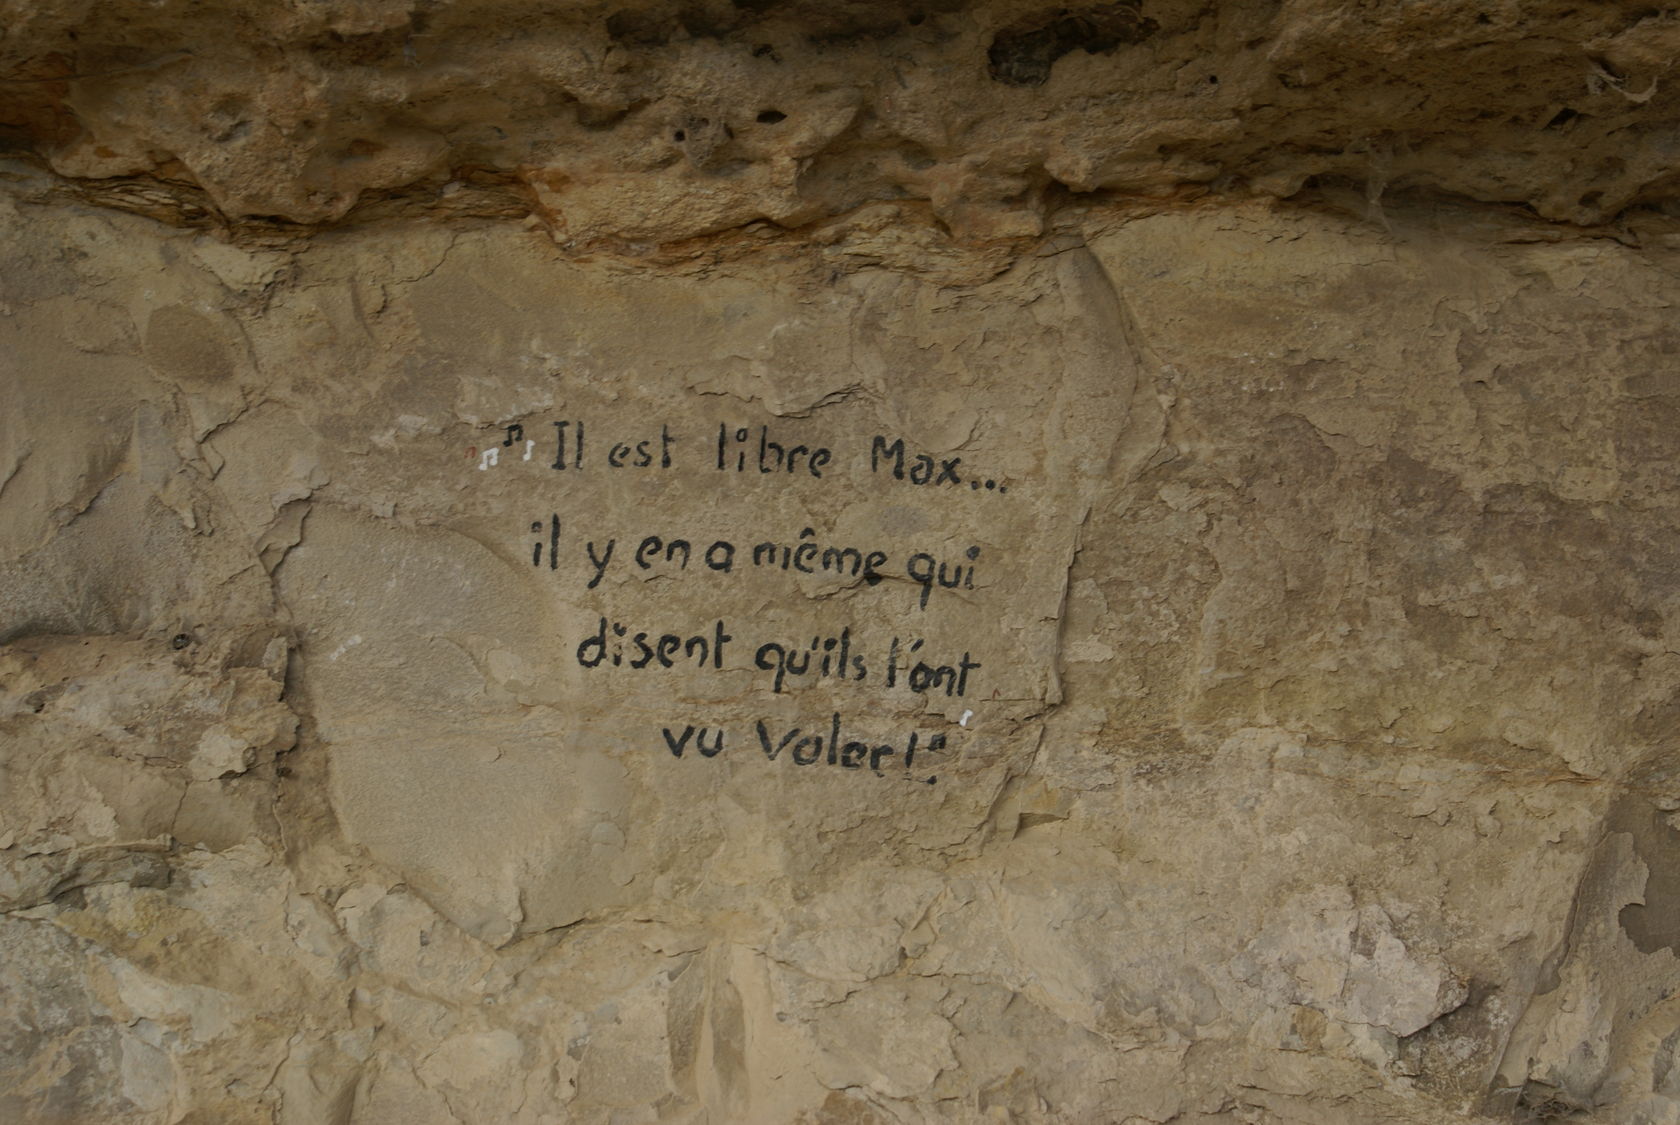 ♫ Il est libre Max...
il y en a même qui
disent qu'ils l'ont
vu Voler! ♫